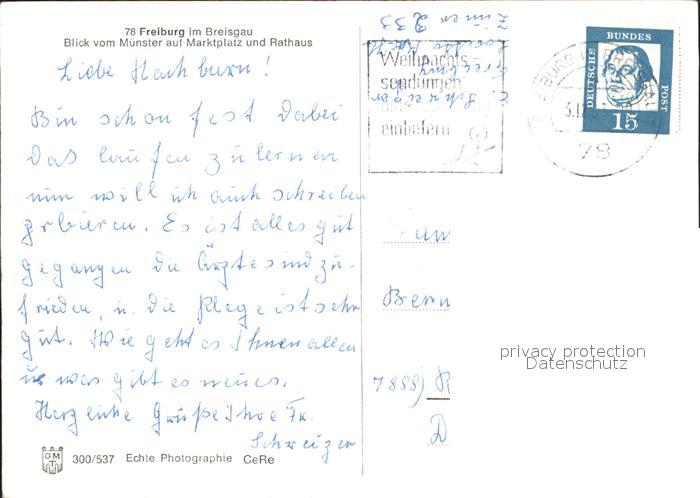 78 Freiburg im Breisgau
Blick vom Münster auf Marktplatz und Rathaus
Liebe
Bin schon fest dabei
das laufen zu lernen
nun will ich auch schreiben
prbieren. Es ist alles gut
gegangen die Ärzte sind zu-
frieden, u. die Plege ist sehr
gut. Wie geht es Ihnen allen
u. was gibt es neues.
Herzliche Grüße Ihre Fr.
Schweizer
GMT
300/537 Echte Photographie CeRe
Zimer 233
Freiburg
E. Schweizer
Weihnachts-
sendungen
einliefern
DEUTSCHE BUNDES POST
15
78
Bern
7888) R
D
privacy protection
Datenschutz